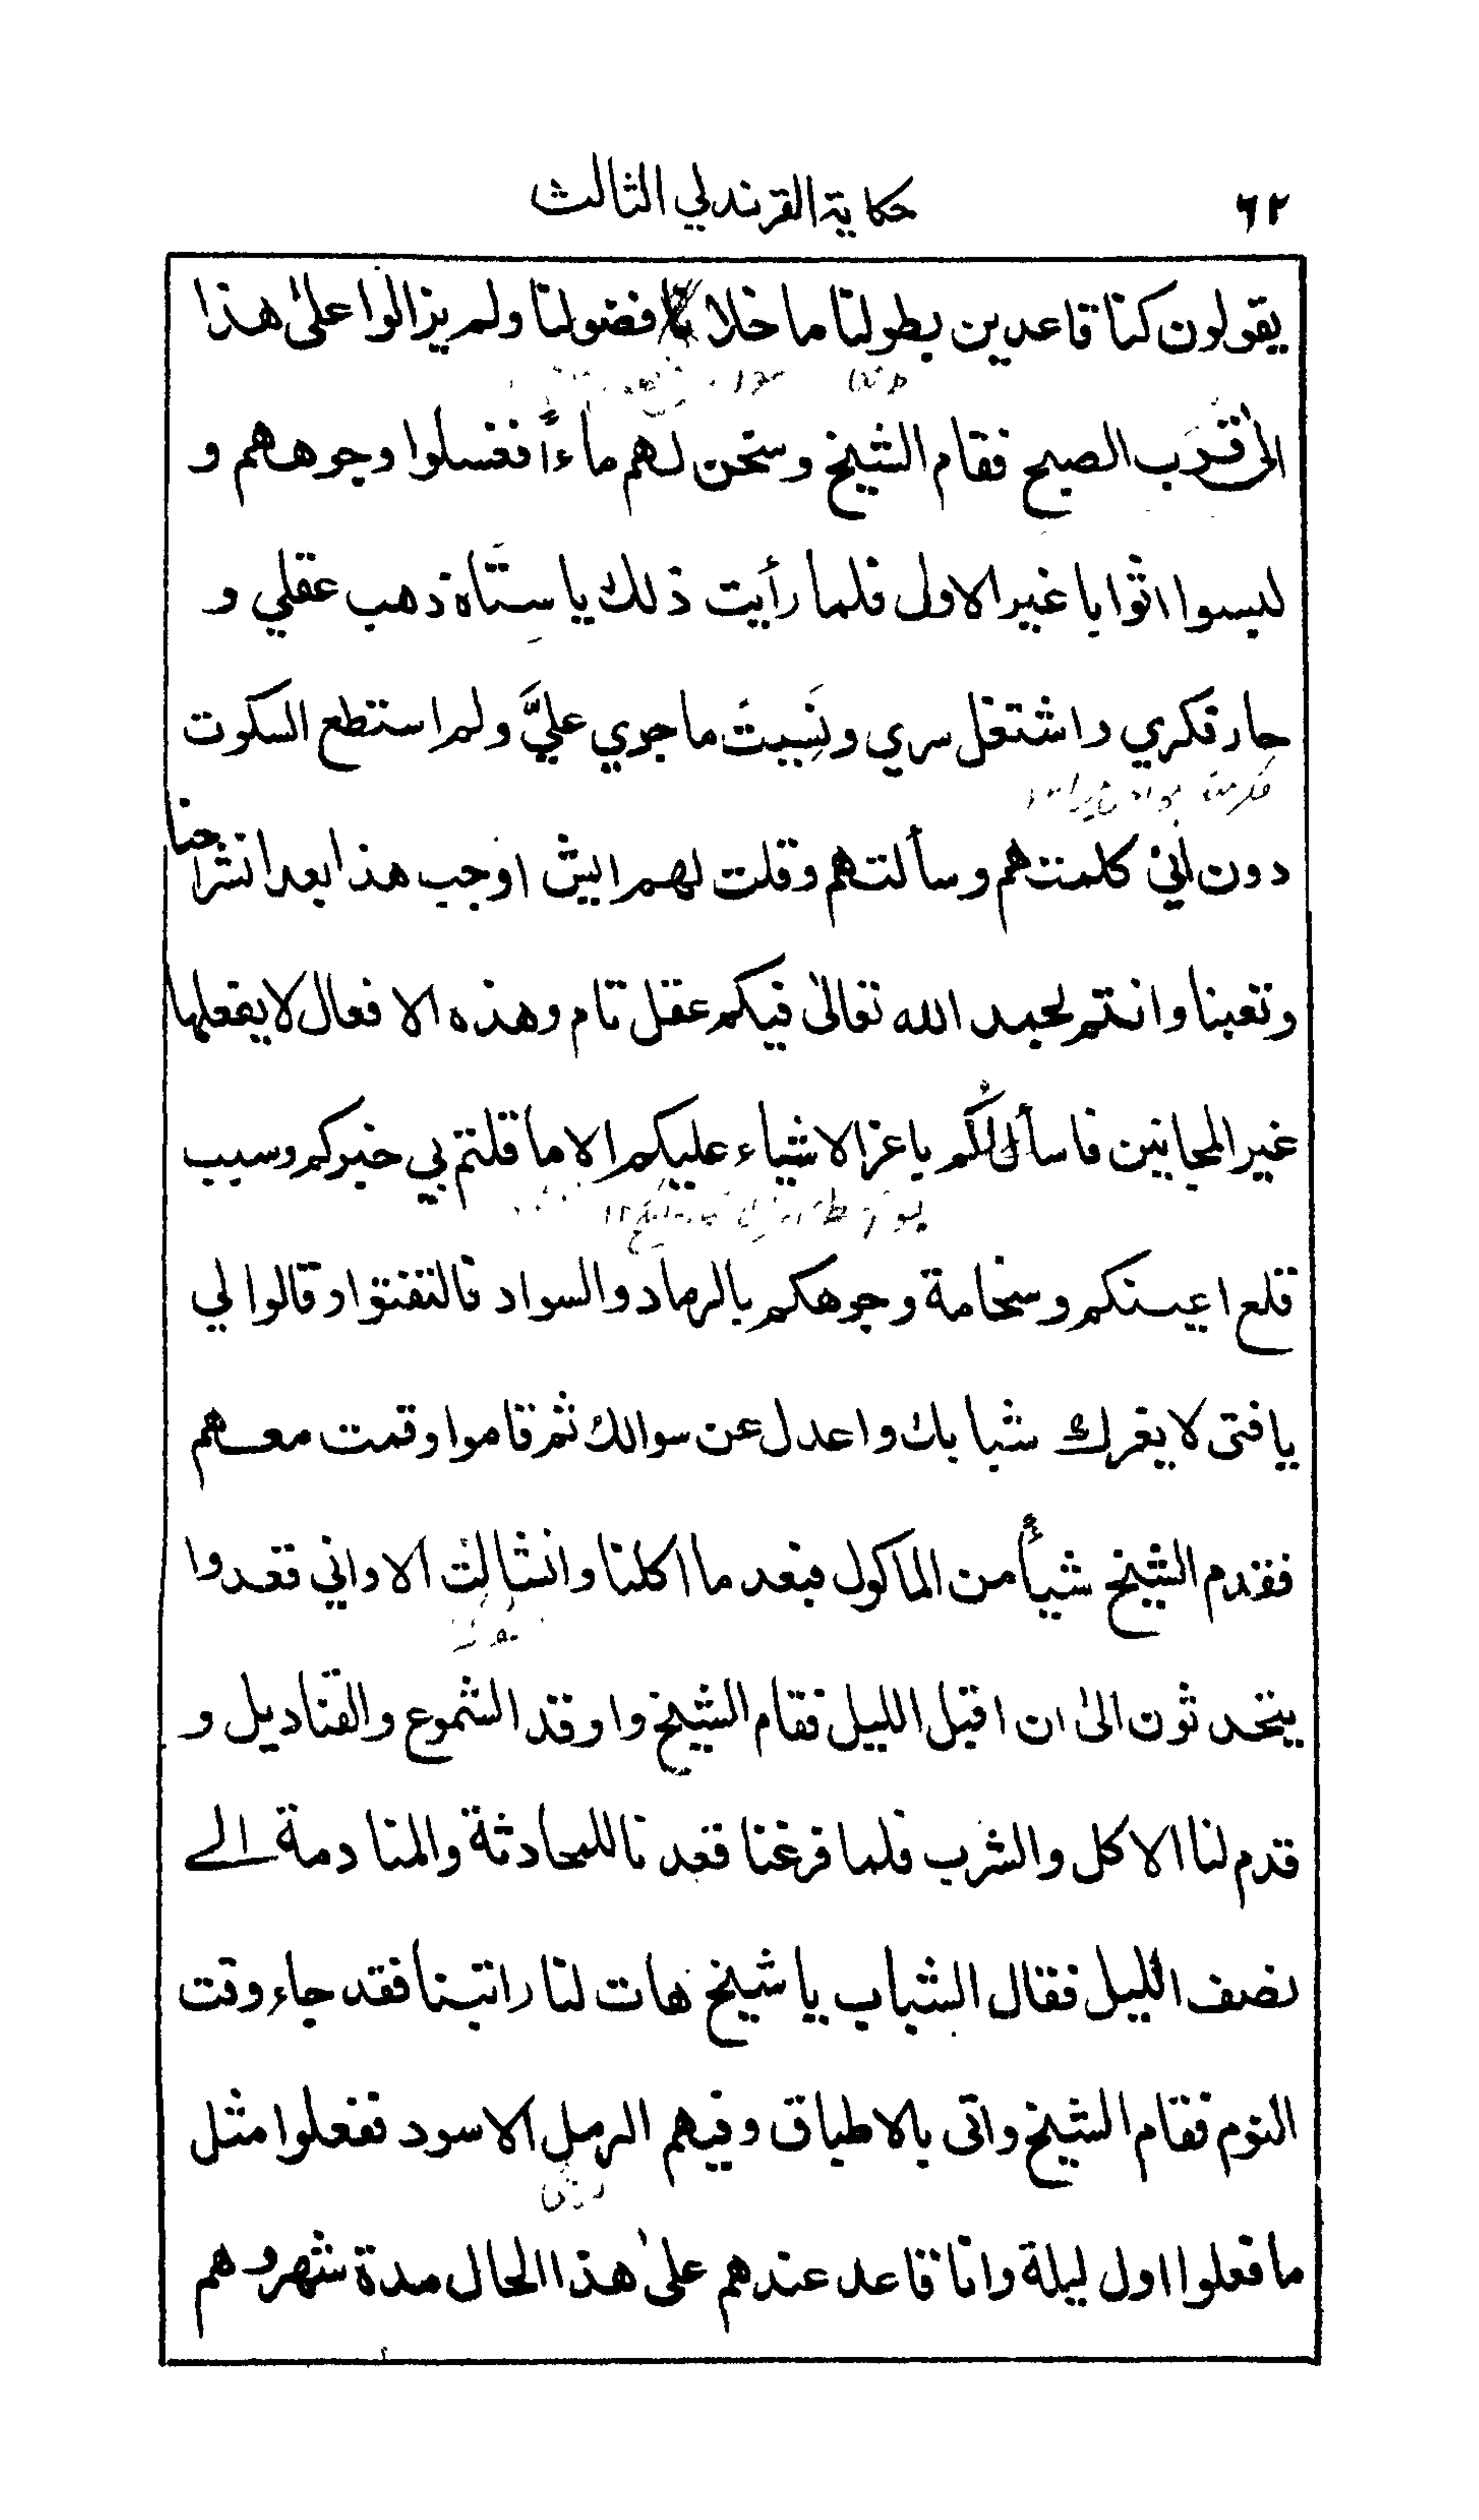 ٦٢ حكاية القرندلي الثالث
يقولون كنا قاعدين بطولنا ما خلانا فضولنا ولم يزالوا على هذا
الى قرب الصبح فقام الشيخ وسخن لهم ماءً فغسلوا وجوههم و
لبسوا اثوابا غير الاول فلما رأيت ذلك يا سِتَّاه ذهب عقلي و
حار فكري واشتغل سري ونَسِيتَ ما جري عليَّ ولم استطع السكوت
دون اني كلمتهم وسألتهم وقلت لهم ايش اوجب هذا بعد انشراحنا
وتعبنا وانتم بحمد الله تعالى فيكم عقل تام وهذه الافعال لا يفعلها
غير المجانين فاسألكُم باعز الاشياء عليكم الا ما قلتم بي خبركم وسبب
قلع اعينكم وسخامة وجوهكم بالرماد والسواد فالتفتوا وقالوا لي
يا فتى لا يغرك شبابك واعدل عن سوالك ثم قاموا وقمت معهم
فقدم الشيخ شيأً من الماكول فبعد ما اكلنا وانشالت الاواني قعدوا
يتحدثون الى ان اقبل الليل فقام الشيخ واوقد الشموع والقناديل و
قدم لنا الاكل والشرب فلما فرغنا قعدنا للمحادثة والمنادمة الى
نصف الليل فقال الشباب يا شيخ هات لنا راتبنا فقد جاء وقت
النوم فقام الشيخ واتى بالاطباق وفيهم الرمل الاسود ففعلوا مثل
ما فعلوا اول ليلة وانا قاعد عندهم على هذا الحال مدة شهر وهم